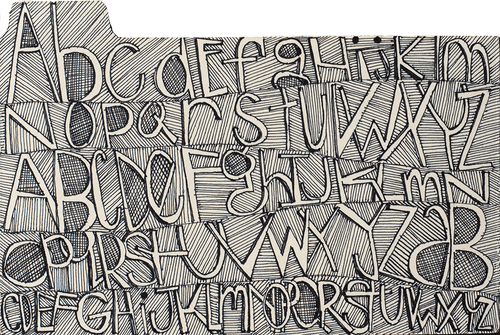 AbcdEfgHijKlm
NOPQrStUVWXYZ
ABCDEFgHIJKlmN
OPQRSTUVWXYZaB
CDEFGHiJKlmNOPQRStUVWXYZ